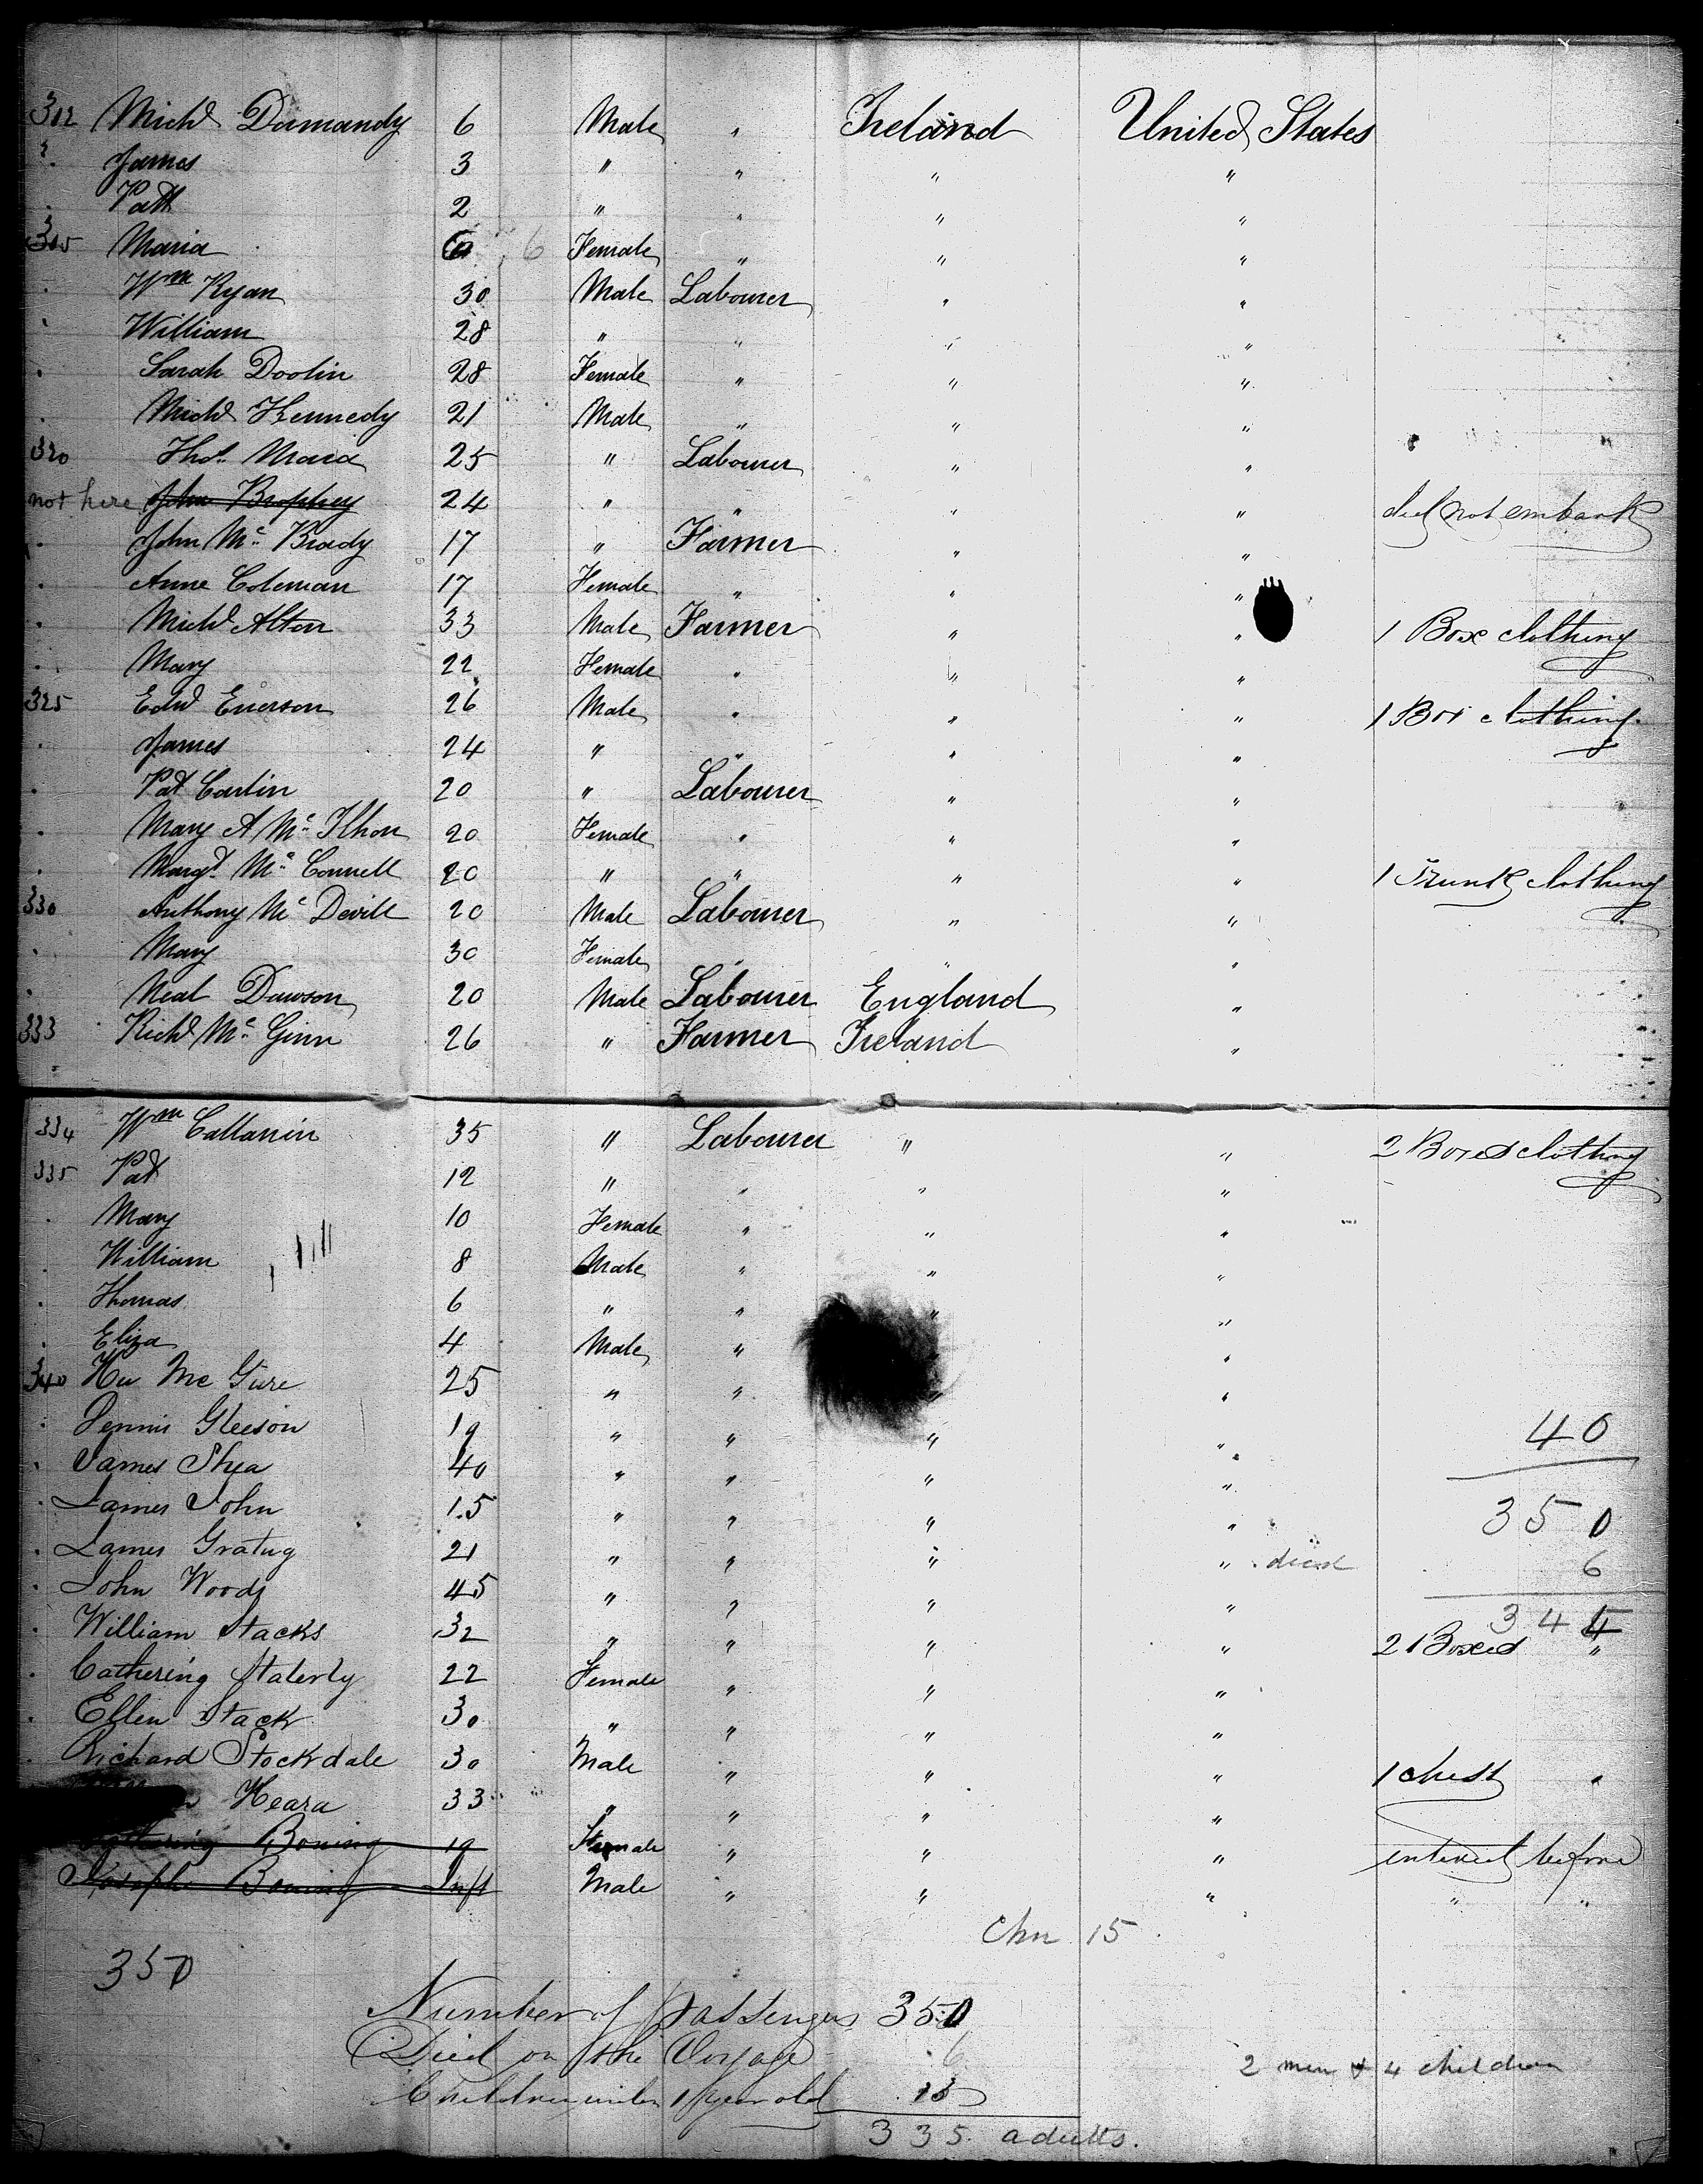 312 Michd Dumandy 6 Male " Ireland United States
James 3 " " " "
Patk 2 " " " "
315 Maria 6 Female " " "
Wm Ryan 30 Male Labourer " "
William 28 " " " "
Sarah Doolin 28 Female " " "
Michd Kennedy 21 Male " " "
320 Thos. Maid 25 " Labourer " "
not here John Brophey 24 " " " " did not embark
John Mc Brady 17 " Farmer " "
Anne Coleman 17 Female " " "
Michd Alton 33 Male Farmer " " 1 Box clothing
Mary 22 Female " " "
325 Edwd Enerson 26 Male " " " 1 Box clothing
James 24 " " " "
Pat Carlin 20 " Labourer " "
Mary A Mc Ilhon 20 Female " " "
Margt. Mc Connell 20 " " " " 1 Trunk clothing
330 Anthony Mc Devill 20 Male Labourer " "
Mary 30 Female " " "
Neal Dawson 20 Male Labourer England "
333 Richd Mc Ginn 26 " Farmer Ireland "
334 Wm Callanin 35 " Labourer " " 2 Boxes clothing
335 Pat 12 " " " "
Mary 10 Female " " "
William 8 Male " " "
Thomas 6 " " " "
Eliza 4 Male " " "
340 Hu Mc Gure 25 " " " "
Dennis Gleeson 19 " " " " 40
James Shea 40 " " " "
James John 15 " " " " 350
James Gratug 21 " " " " died 6
John Woods 45 " " " "
344
William Stacks 32 " " " " 2 Boxes "
Cathering Staterly 22 Female " " "
Ellen Stack 30 " " " "
Richard Stockdale 30 Male " " " 1 chest "
Heara 33 " " " "
Cathering Boning 19 Female " " " entered before
Joseph Boning Inft Male " " " " "
Chn 15
350
Number of passengers 350
Died on the Voyage 6
2 men & 4 children
Children under 1 year old 15
335 adults.